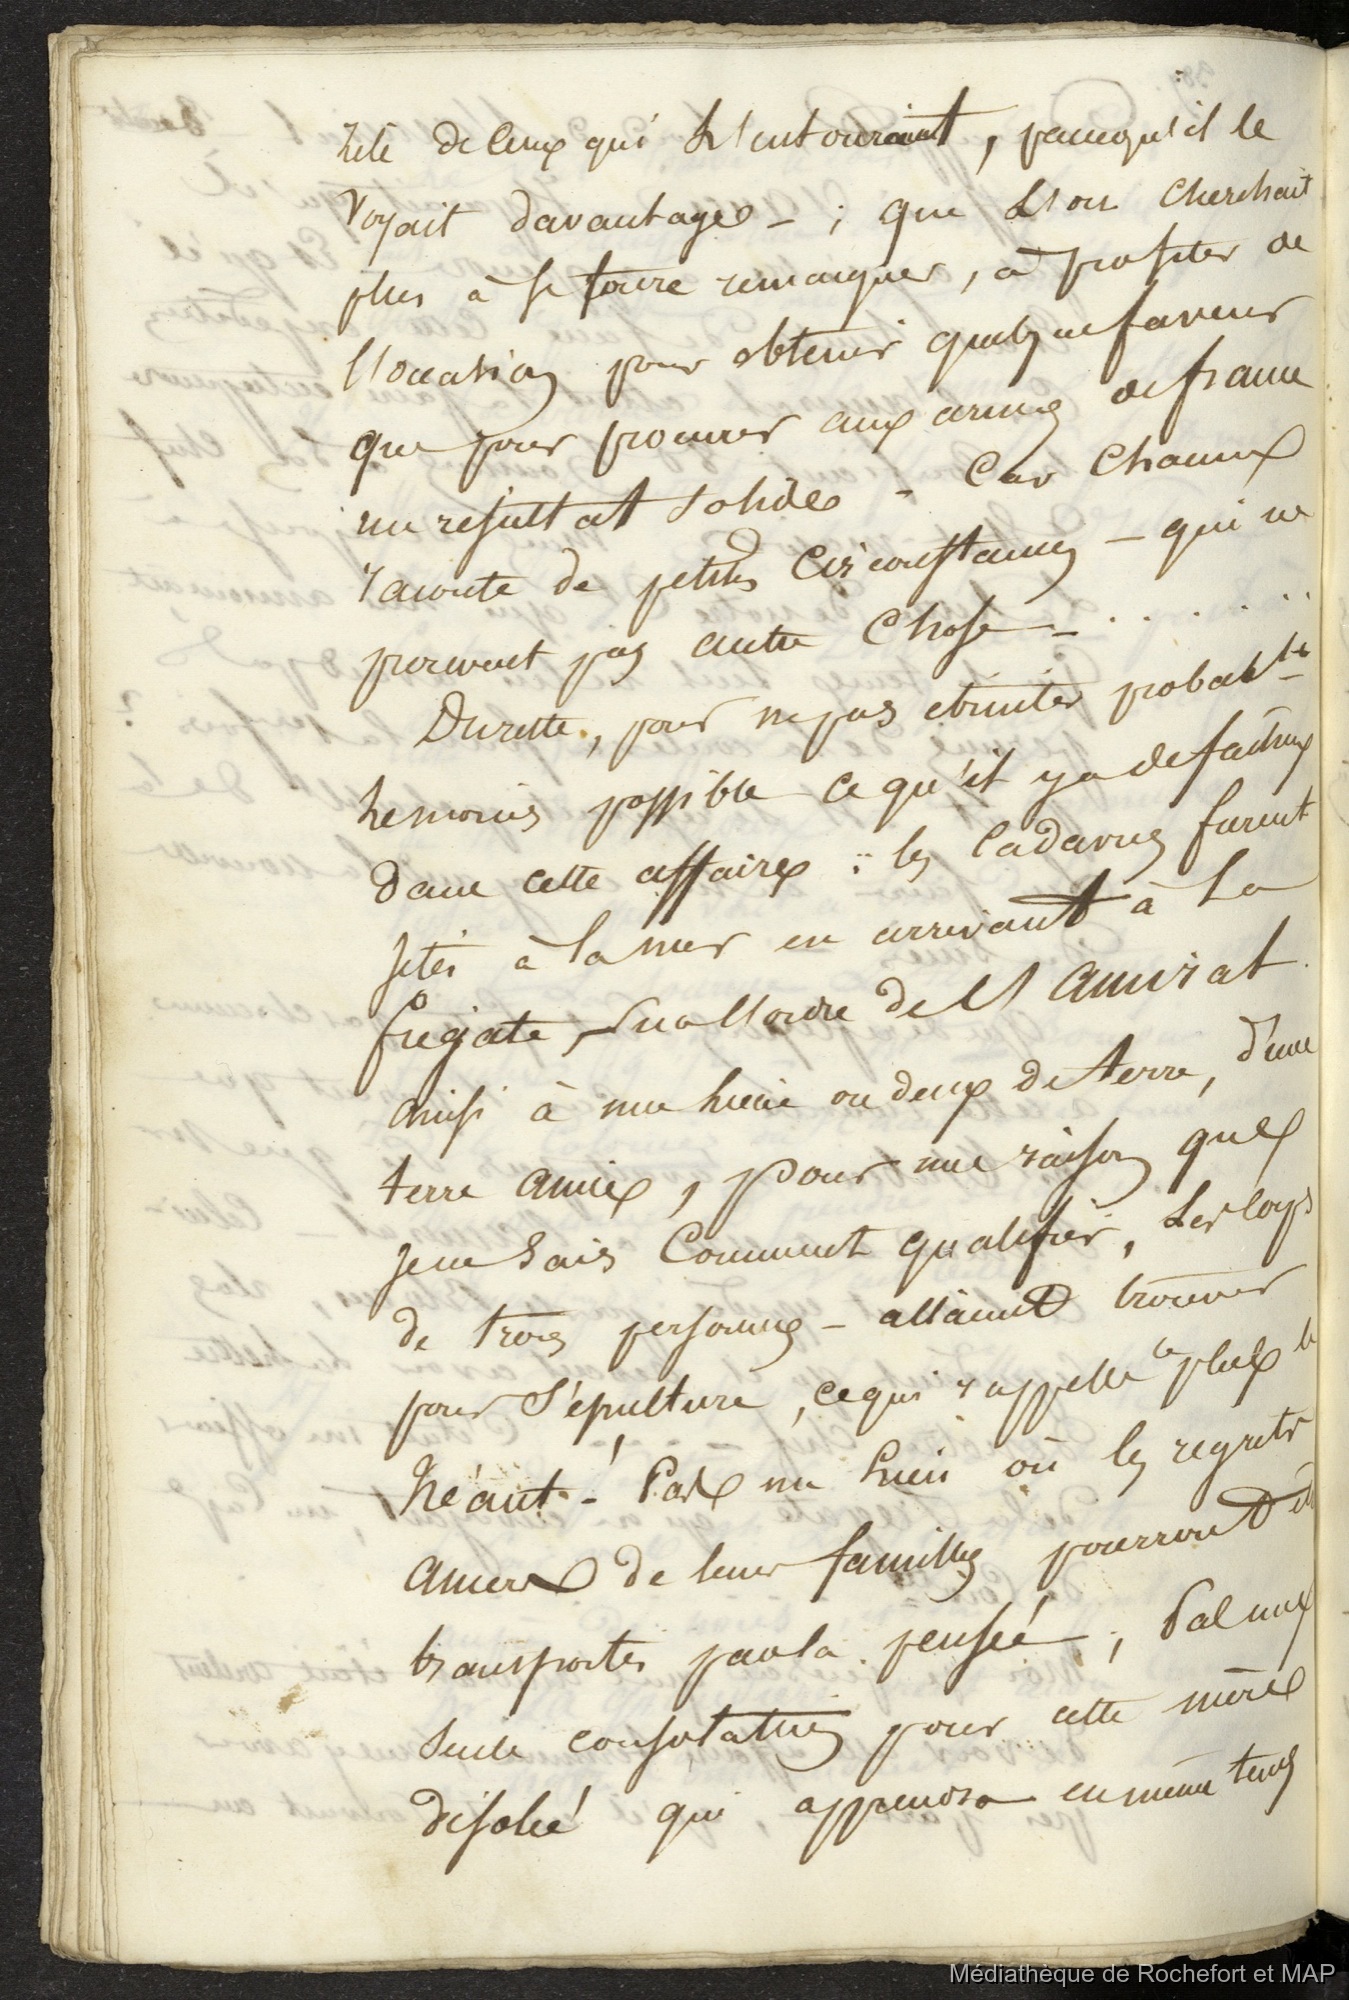 zèle de ceux qui L'entouraient, parcequ'il le
voyait davantage - ; que L'on cherchait
plus à se faire remarquer, à profiter de
l'occasion pour obtenir quelque faveur
que pour procurer aux armes de france
un resultat solide - Car Chacun
raconte de petites Circonstances - qui ne
prouvent pas autre Chose - . . . . . .
Du reste, pour ne pas ebruiter probabt
le moins possible ce qu'il y a de facheux
dans cette affaire : les Cadavres furent
jetés à la mer en arrivant à La
fregate, Sur l'ordre de L'Amiral.
ainsi à une lieue ou deux de terre, d'une
terre amie, pour une raison que
je ne Sais Comment qualifier, Les corps
de trois personnes - allaient trouver
pour Sépulture, ce qui rappelle le plus le
Néant - Pas un lieu où les regrets
amers de leur famille pourront être
transportés par la pensée, Pas une
Seule consolation pour cette mère
désolée qui, apprendra en même tems
Médiathèque de Rochefort et MAP